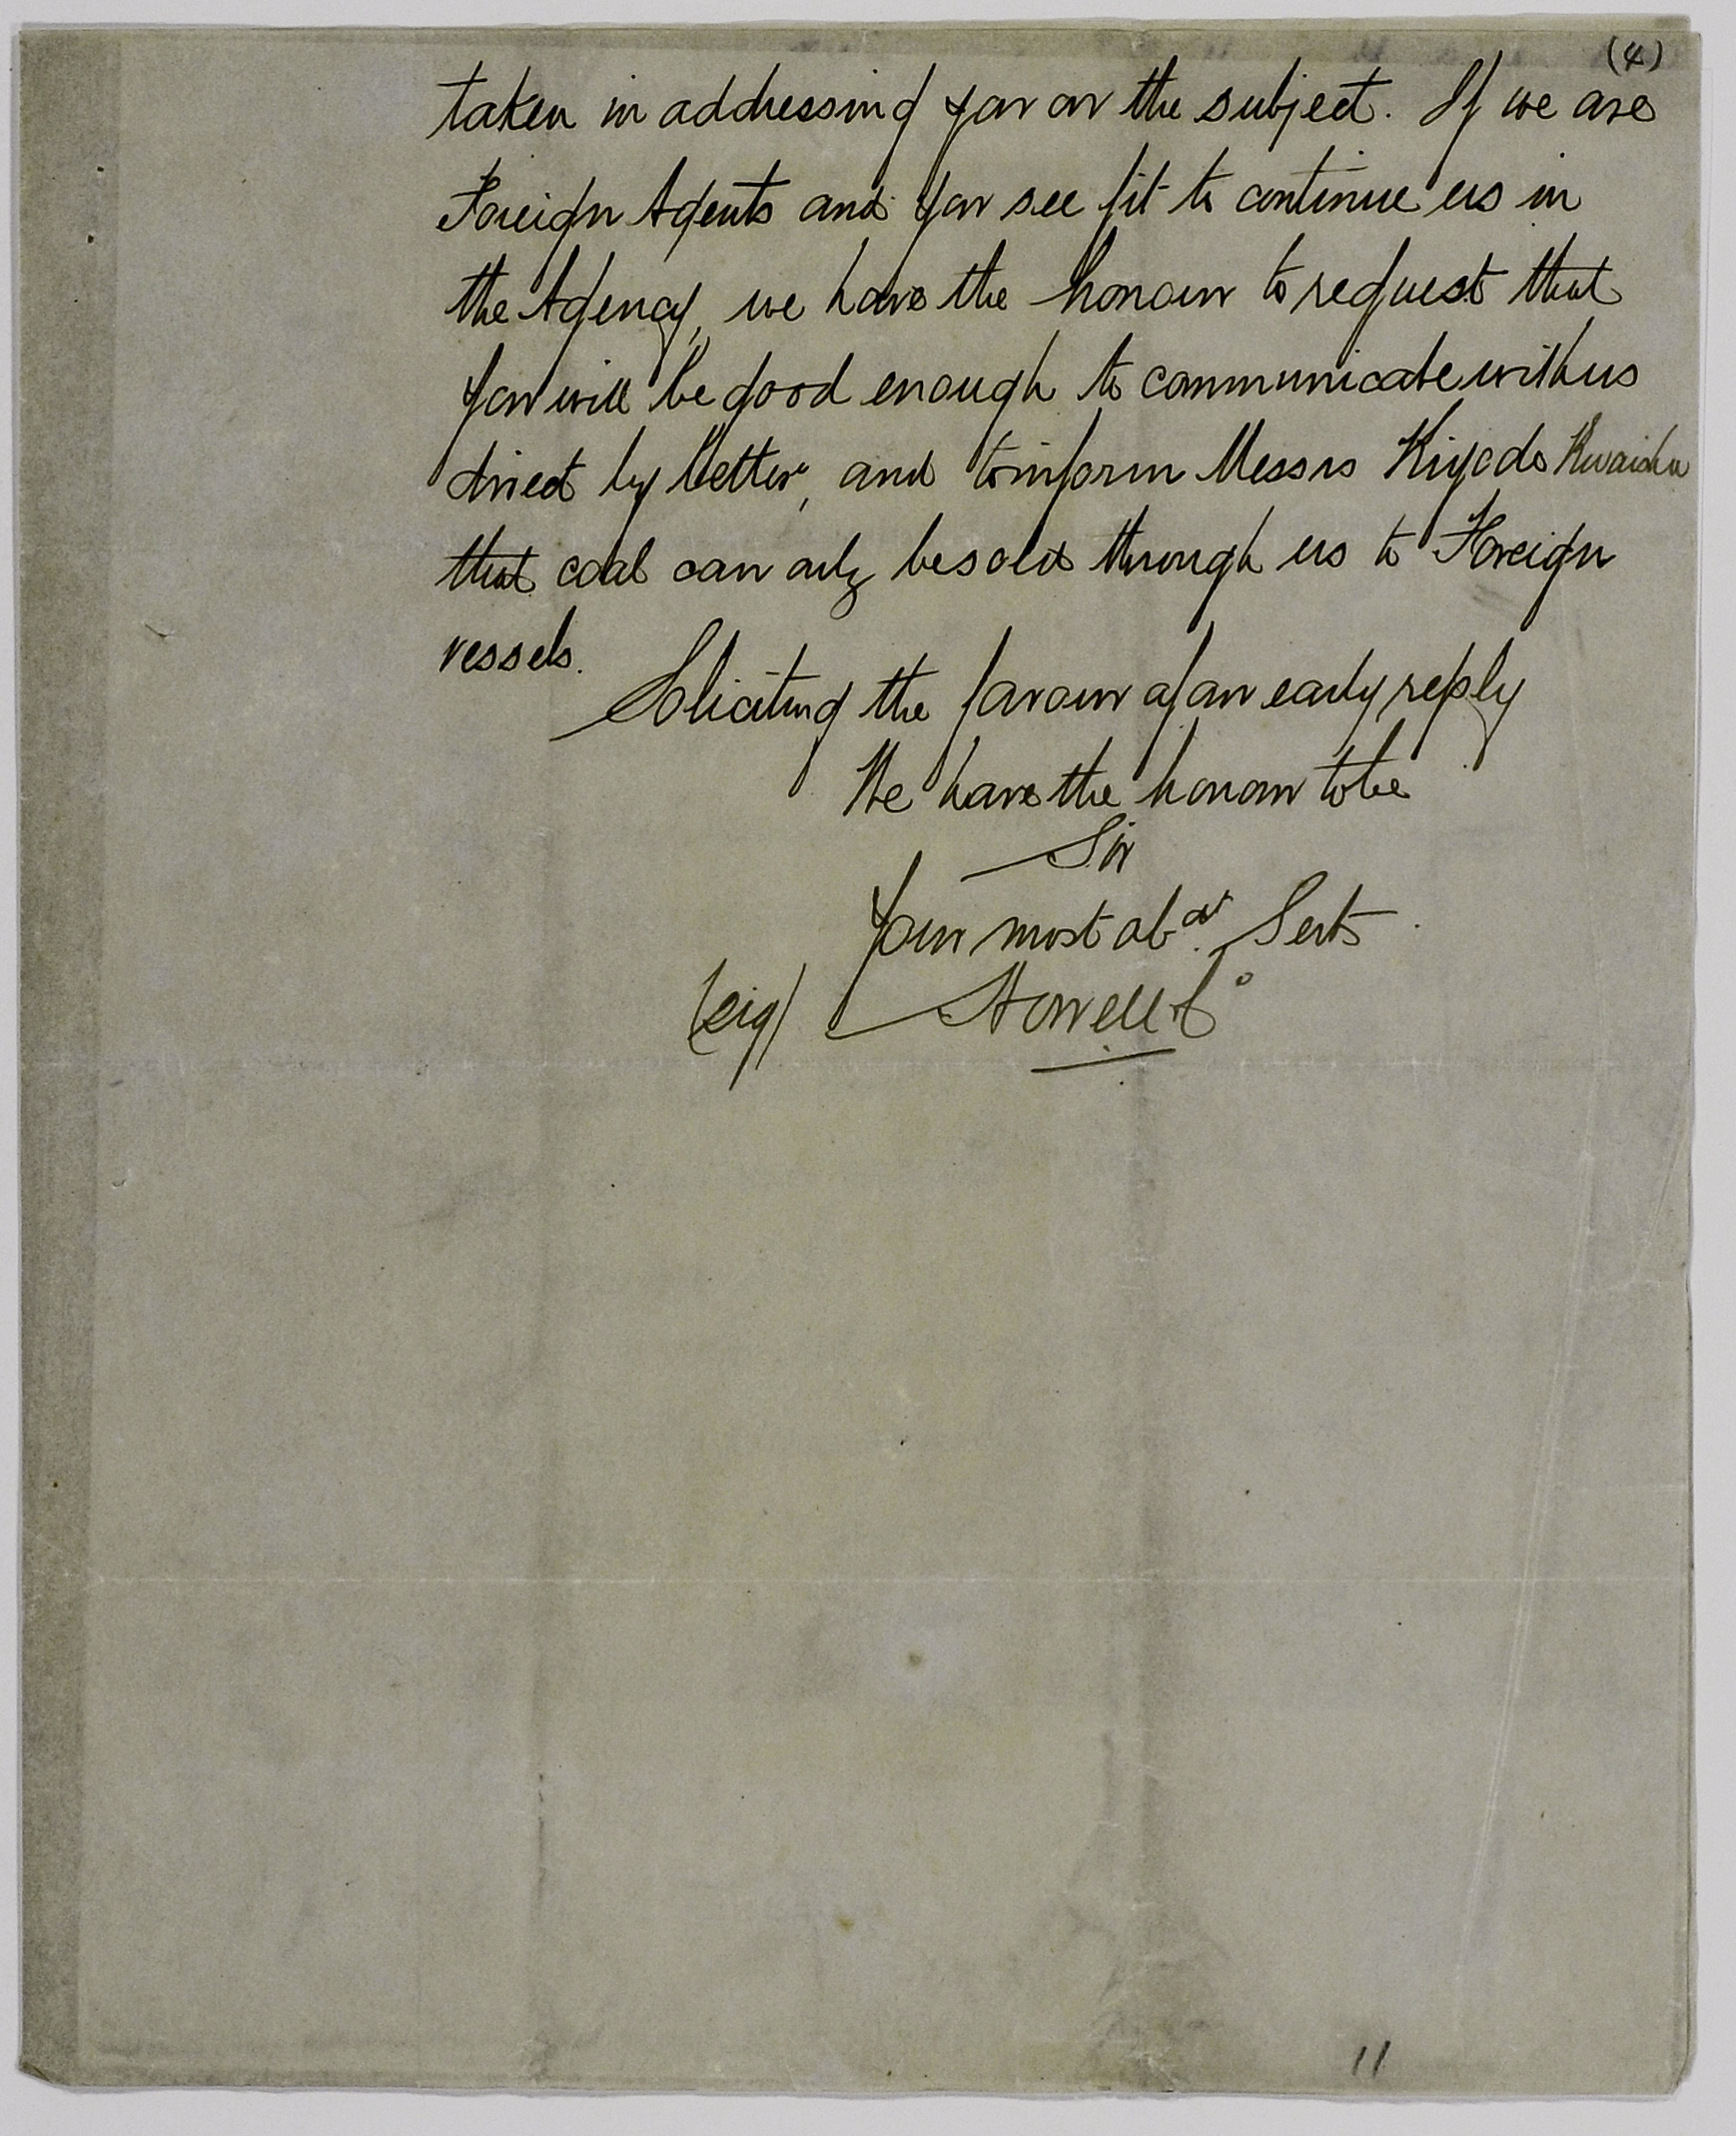 (4)
taken in addressing you on the subject. If we are
Foreign Agents and you see fit to continue us in
the Agency, we have the honour to request that
you will be good enough to communicate with us
direct by letter, and to inform Messrs Kiyodo Kwaisha
that coal can only be sold through us to Foreign
vessels.
Soliciting the favour of an early reply
We have the honour to be
Sir
Your most obdt. Servts
(sig) Howell & Co
11